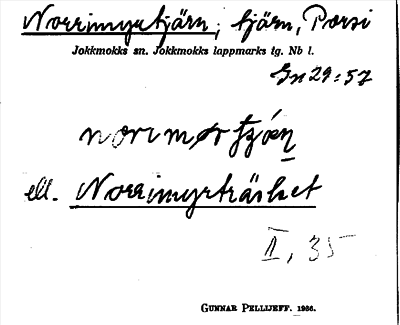 Norrimyrtjärn, tjärn, Porsi
Jokkmokks sn. Jokkmokks lappmarks tg. Nb l.
Gn 29:57
ell. Norrimyrträsket
II, 35
GUNNAR PELLIJEFF. 1966.